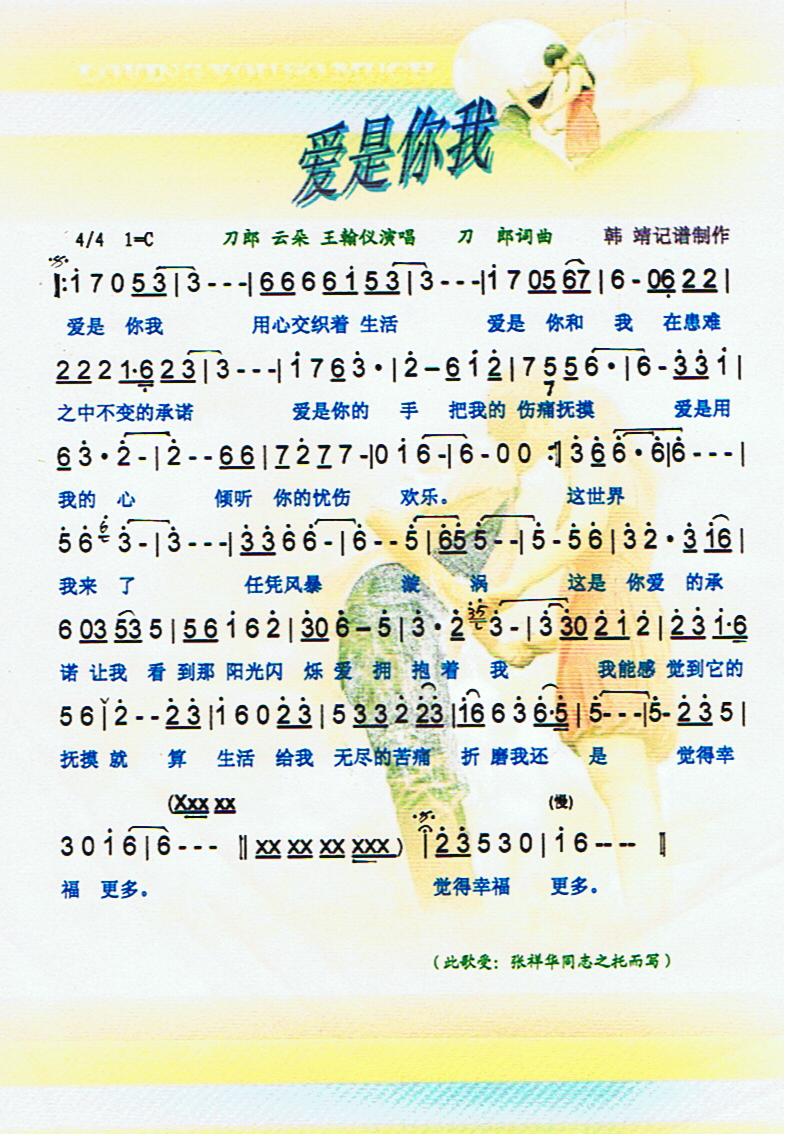 LOVING YOU SO MUCH
爱是你我
4/4 1=C 刀郎 云朵 王翰仪演唱 刀 郎词曲 韩 靖记谱制作
‖:i̇ 7 0 5 3 | 3 - - - | 6 6 6 6 i̇ 5 3 | 3 - - - | i̇ 7 0 5 6 7 | 6 - 0 6 2 2 |
爱是 你我 用心交织着 生活 爱是 你和 我 在患难
2 2 2 1·6 2 3 | 3 - - - | i̇ 7 6 3̇ · | 2̇ – 6 i̇ 2̇ | 7 5 5 6 · | 6 - 3̇ 3̇ i̇ |
之中不变的承诺 爱是你的 手 把我的 伤痛抚摸 爱是用
6 3̇ · 2̇ - | 2̇ - - 6 6 | 7 2̇ 7 7 - | 0 i̇ 6 - | 6 - 0 0 :‖ 3̇ 6̇ 6̇ · 6̇ | 6̇ - - - |
我的 心 倾听 你的忧伤 欢乐。 这世界
5̇ 6̇ 3̇ - | 3̇ - - - | 3̇ 3̇ 6̇ 6̇ - | 6̇ - - 5̇ | 6̇ 5̇ 5̇ - - | 5̇ - 5̇ 6̇ | 3̇ 2̇ · 3̇ i̇ 6 |
我来 了 任凭风暴 漩 涡 这是 你爱 的承
6 0 3 5 3 5 | 5 6 i̇ 6 2̇ | 3̇ 0 6̇ – 5̇ | 3̇ · 2̇ 3̇ - | 3̇ 3̇ 0 2̇ i̇ 2̇ | 2̇ 3̇ i̇·6 |
诺 让我 看 到那 阳光闪 烁 爱 拥 抱 着 我 我能感 觉到它的
5 6 i̇ | 2̇ - - 2̇ 3̇ | i̇ 6 0 2̇ 3̇ | 5 3̇ 3̇ 2̇ 2̇ 3̇ | i̇ 6 6 3̇ 6·5 | 5 - - - | 5 - 2̇ 3̇ 5 |
抚摸 就 算 生活 给我 无尽的苦痛 折 磨我还 是 觉得幸
(Xxx xx (慢)
3 0 i̇ 6 | 6 - - - ‖ xx xx xx xxx ) i̇ | 2̇ 3̇ 5 3 0 | i̇ 6 -- -- ‖
福 更多。 觉得幸福 更多。
（此歌受：张祥华同志之托而写）